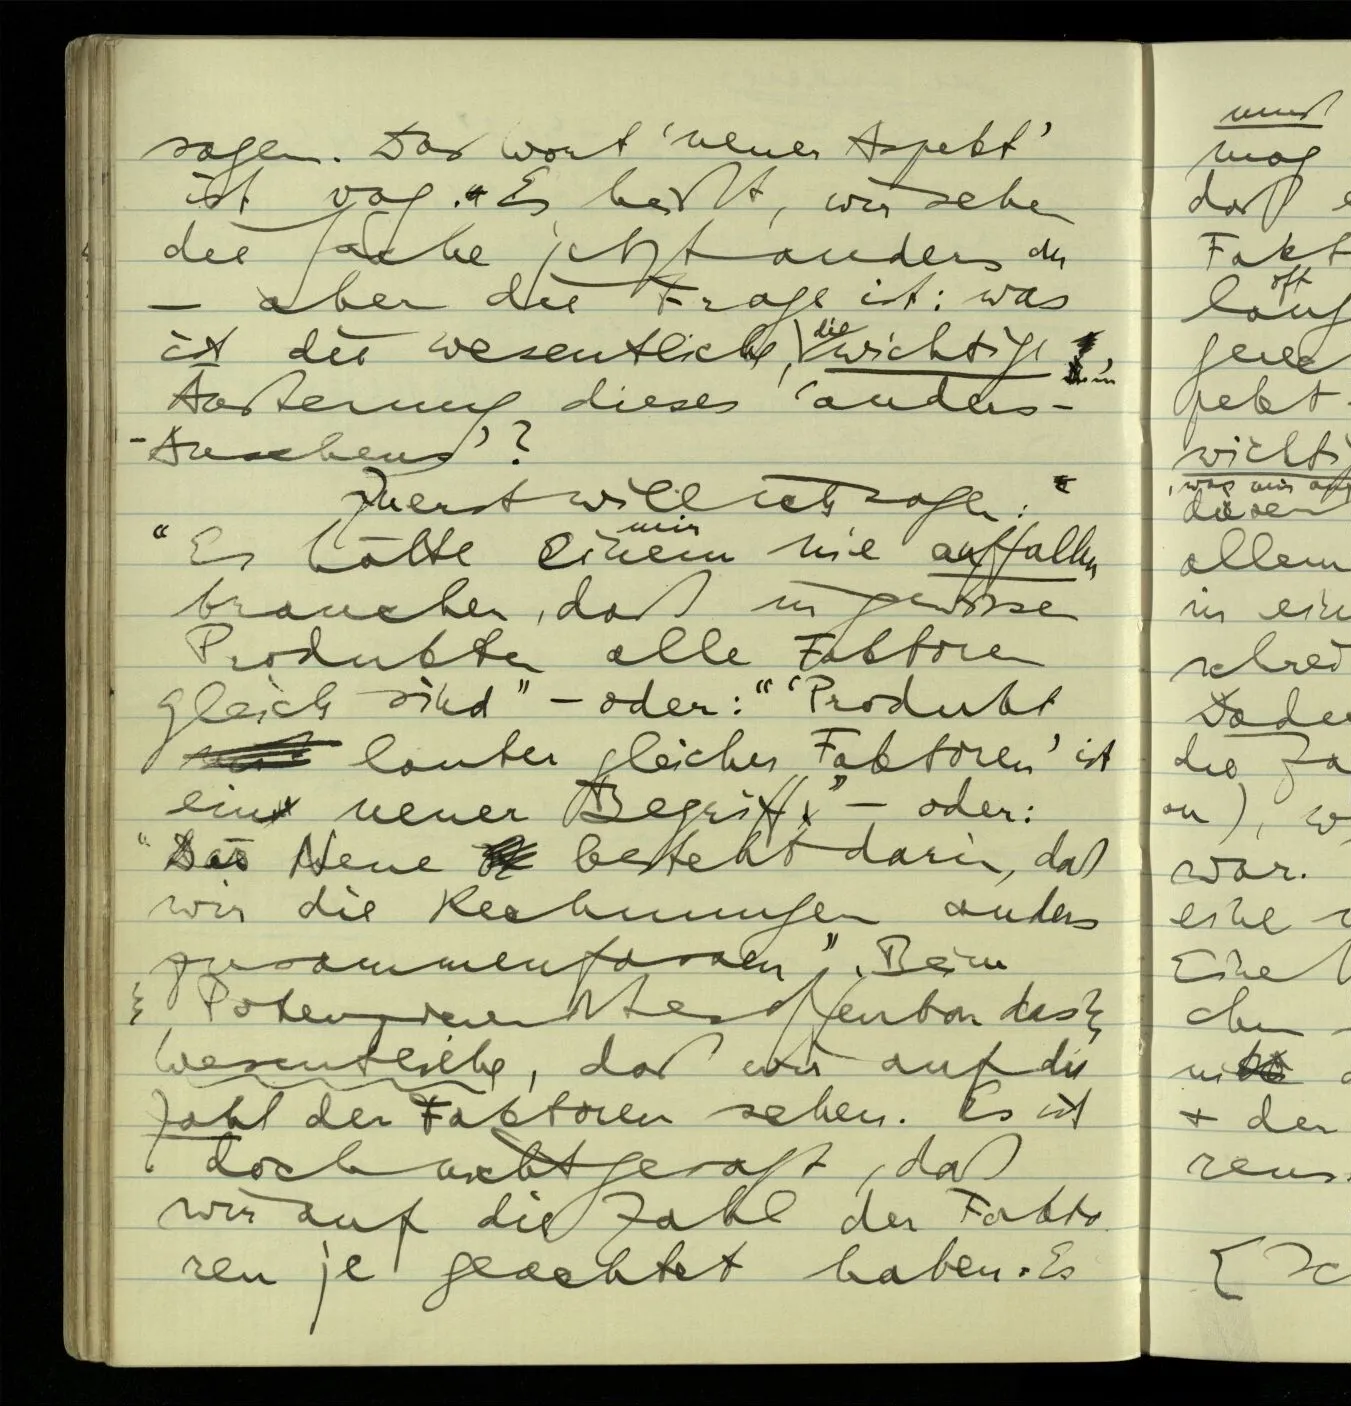 sagen. Das Wort 'neuer Aspekt'
ist vag. "Es heißt, wir sehen
die Sache jetzt anders an
— aber die Frage ist: was
ist die wesentliche, die wichtige
Äußerung dieses 'anders-
-Ansehens'?
Zuerst will ich sagen:
"Es hätte einem mir nie auffallen
brauchen, daß in gewissen
Produkten alle Faktoren
gleich sind" – oder: "'Produkt
lauter gleicher Faktoren' ist
ein neuer Begriff" – oder:
"Das Neue besteht darin, daß
wir die Rechnungen anders
zusammenfassen". Beim
Potenzieren ist es offenbar das
Wesentliche, daß wir auf die
Zahl der Faktoren sehen. Es ist
doch nicht gesagt, daß
wir auf die Zahl der Fakto
ren je geachtet haben. Es
muß
mag
daß
Fakt
oft
wichti
diesen
allem
in ein
schrei
war.
eine
+ der